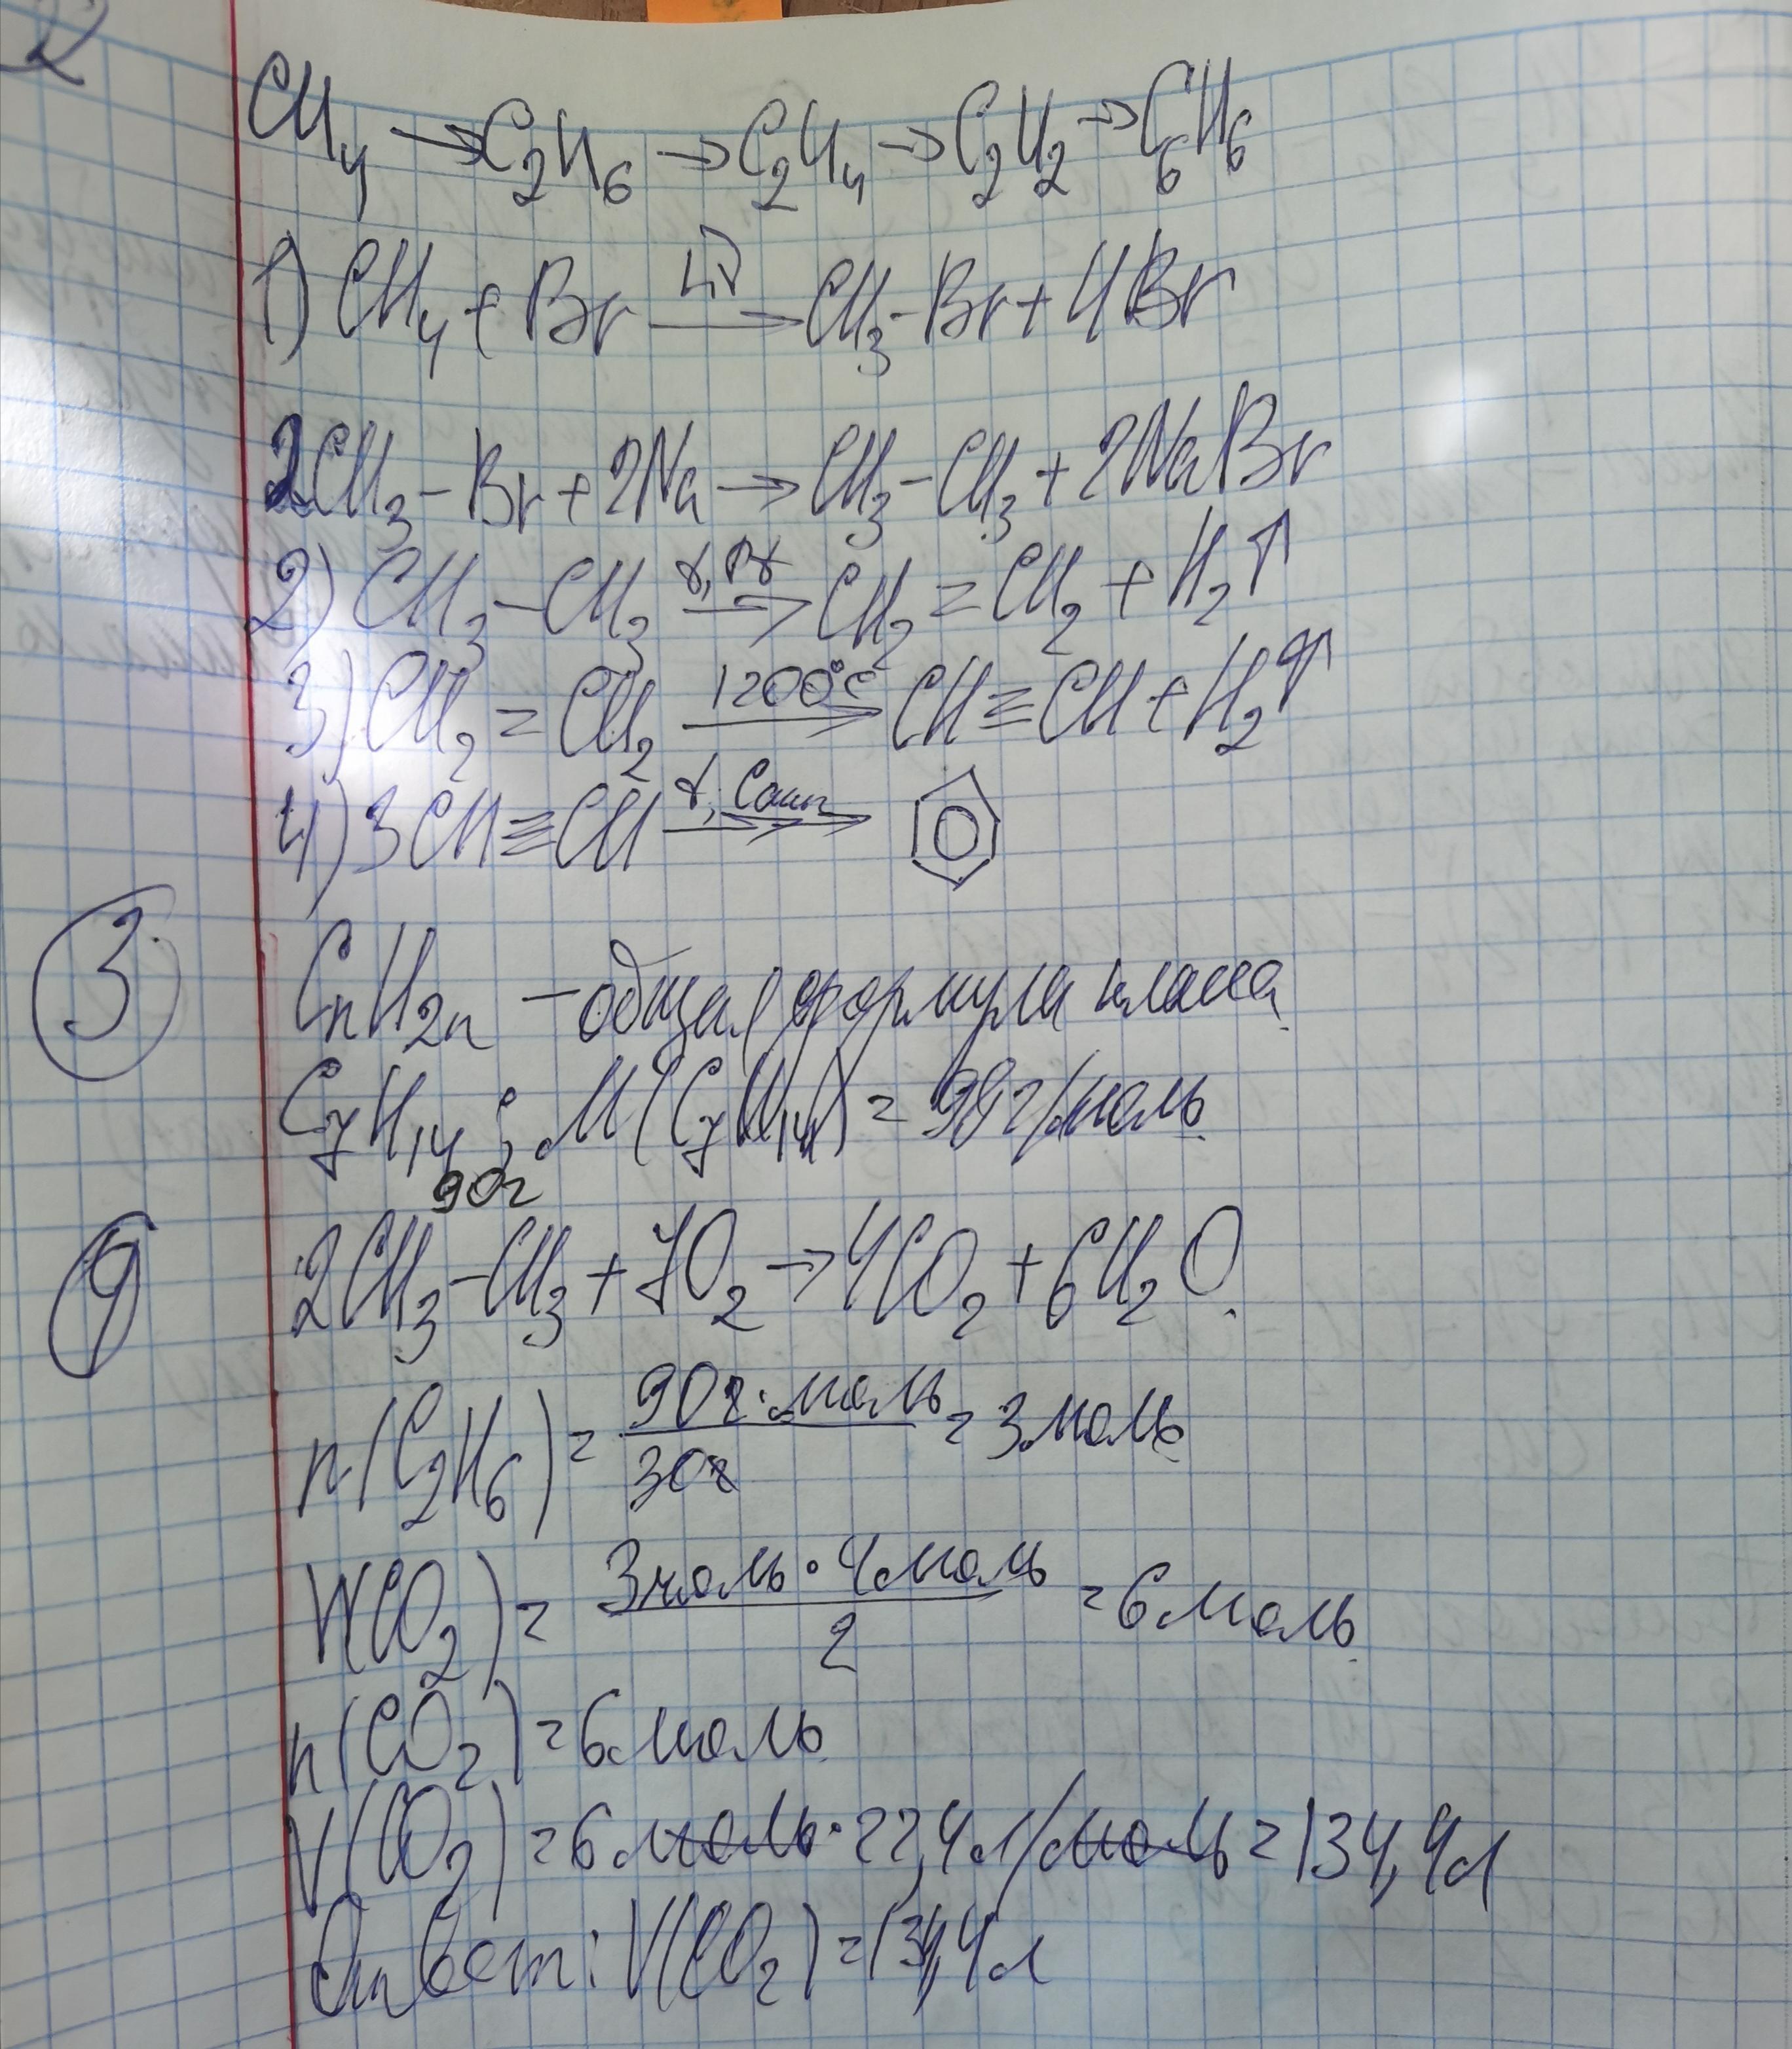 2
CH₄ → C₂H₆ → C₂H₄ → C₂H₂ → C₆H₆
1) CH₄ + Br → CH₃-Br + HBr
2CH₃-Br + 2Na → CH₃-CH₃ + 2NaBr
2) CH₃-CH₃ t, Pt → CH₂=CH₂ + H₂↑
3) CH₂=CH₂ 1200°C → CH≡CH + H₂↑
4) 3CH≡CH t, Cакт →
3
CnH2n - общая формула класса
C₇H₁₄; M(C₇H₁₄) = 98г/моль
90г
4
2CH₃-CH₃ + 7O₂ → 4CO₂ + 6H₂O
n(C₂H₆) = 90г·моль / 30г = 3моль
V(CO₂) = 3моль·4моль / 2 = 6моль
n(CO₂) = 6моль
V(CO₂) = 6моль·22,4л/моль = 134,4л
Ответ: V(CO₂) = 134,4л